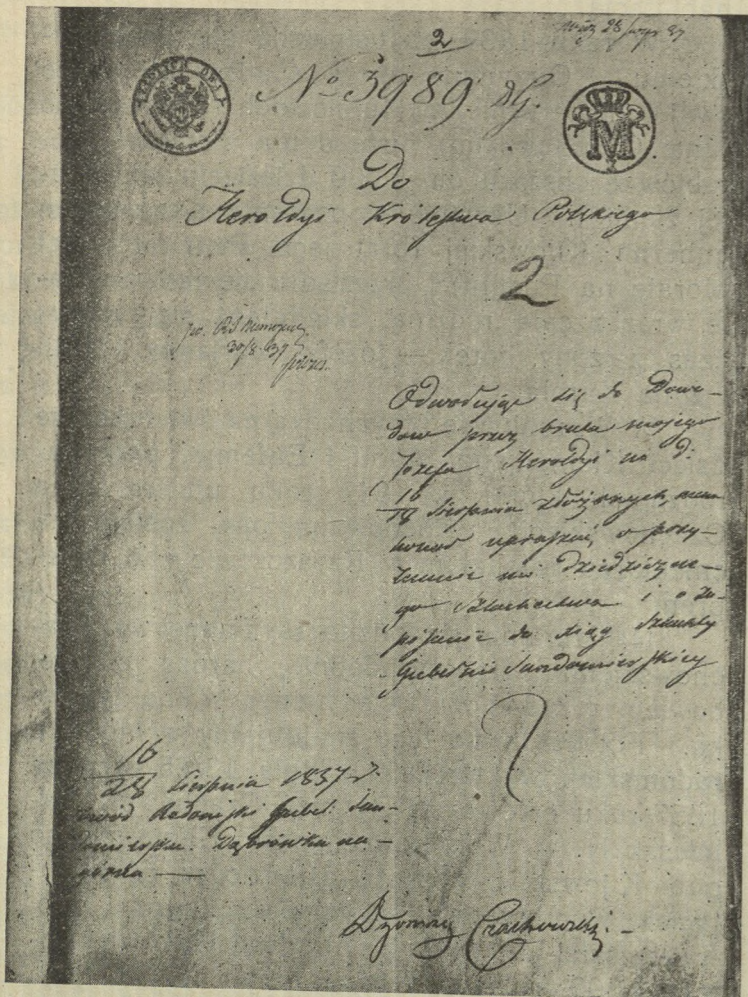 2
28 sierp 37
No 3989.
M
Do
Heroldyi Królestwa Polskiego
2
30/8 37
Odwołując się do Dowo-
dow przez brata mojego
Jozefa Heroldyi na d:
16/28 Sierpnia złożonych, mam
honor upraszać o przy-
znanie mi dziedziczne-
go Szlachectwa i o za-
pisanie do xiąg Szlachty
Gubernii Sandomierskiey
16/28 Sierpnia 1837 r.
Obwód Radomski Gubel. San-
domierska. Dąbrówka na-
górna —
Czachowski. —